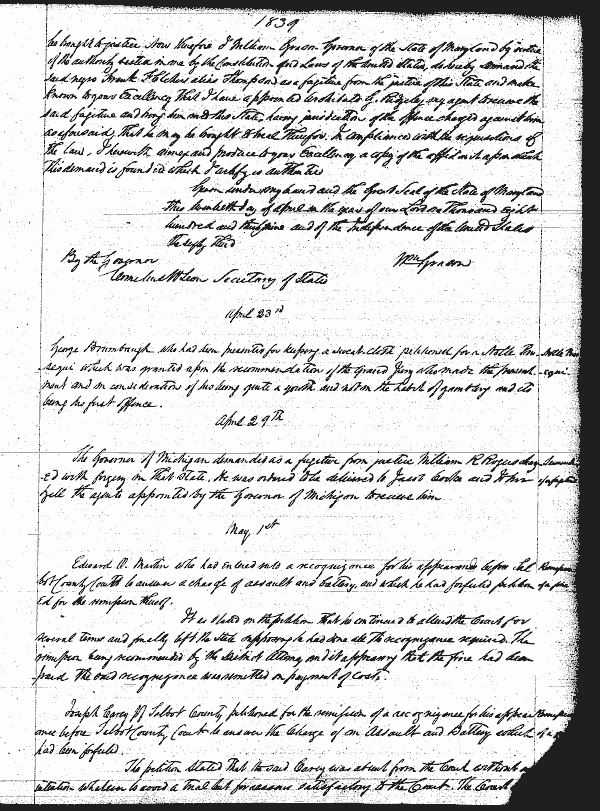 1839
be brought to justice. Now therefore I William Grason Governor of the State of Maryland by virtue
of the authority vested in me by the Constitution and Laws of the United States, do hereby demand the
said negro Frank Fletcher alias Thompson as a fugitive from the justice of this State and make
known to your Excellency that I have appointed Archibald G. Ridgely my agent to receive the
said fugitive and bring him unto this State, having jurisdiction of the offence charged against him
as aforesaid, that he may be brought to trial therefor. In compliance with the requisitions of
the law, I herewith annex and produce to your Excellency a copy of the affidavit upon which
this demand is founded which I certify is authentic
Given under my hand and the Great Seal of the State of Maryland
this day of April in the year of our Lord one Thousand eight
hundred and thirty nine and of the Independence of the United States
the sixty third
By the Governor Wm Grason
Cornelius McLean Secretary of State
April 23rd
George Brumbaugh who had been presented for keeping a sweat cloth petitioned for a Nolle Pro- Nolle Pros
sequi which was granted upon the recommendation of the Grand Jury who made the present- equi
ment and in consideration of his being quite a youth and not in the habit of gambling and its
being his first offence.
April 29th
The Governor of Michigan demanded as a fugitive from justice William R Rogers charg- Demand
ed with forgery in that State, He was ordered to be delivered to Jacob and
the agents appointed by the Governor of Michigan to receive him of a fugitive
May 1st
Edward D. Martin who had entered into a recognizance for his appearance before Tal- Remission
bot County Court to answer a charge of assault and battery, and which he had forfeited petition- of a fine
ed for the remission thereof.
It is stated in the petition that he continued to attend the Court for
several terms and finally left the State supposing he had done all the recognizance required. The
remission being recommended by the District Attorney and it appearing that the fine had been
paid the said recognizance was remitted on payment of costs.
Joseph Carey of Talbot County petitioned for the remission of a recognizance for his appear- Remission
ance before Talbot County Court to answer the Charge of an Assault and Battery which of a
had been forfeited.
The petition stated that the said Carey was absent from the Court without any
intention whatever to avoid a trial but for reasons satisfactory to the Court. The Court